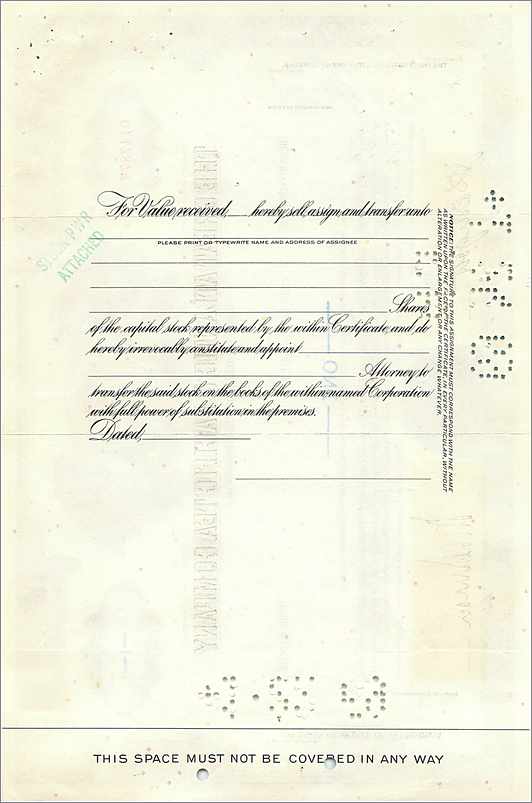 For Value received, hereby sell, assign, and transfer unto
PLEASE PRINT OR TYPEWRITE NAME AND ADDRESS OF ASSIGNEE
Shares
of the capital stock represented by the within Certificate, and do
hereby irrevocably constitute and appoint
Attorney to
transfer the said stock on the books of the within-named Corporation
with full power of substitution in the premises.
Dated,
NOTICE: THE SIGNATURE TO THIS ASSIGNMENT MUST CORRESPOND WITH THE NAME
AS WRITTEN UPON THE FACE OF THE CERTIFICATE, IN EVERY PARTICULAR, WITHOUT
ALTERATION OR ENLARGEMENT, OR ANY CHANGE WHATEVER.
ATTACHED
THIS SPACE MUST NOT BE COVERED IN ANY WAY